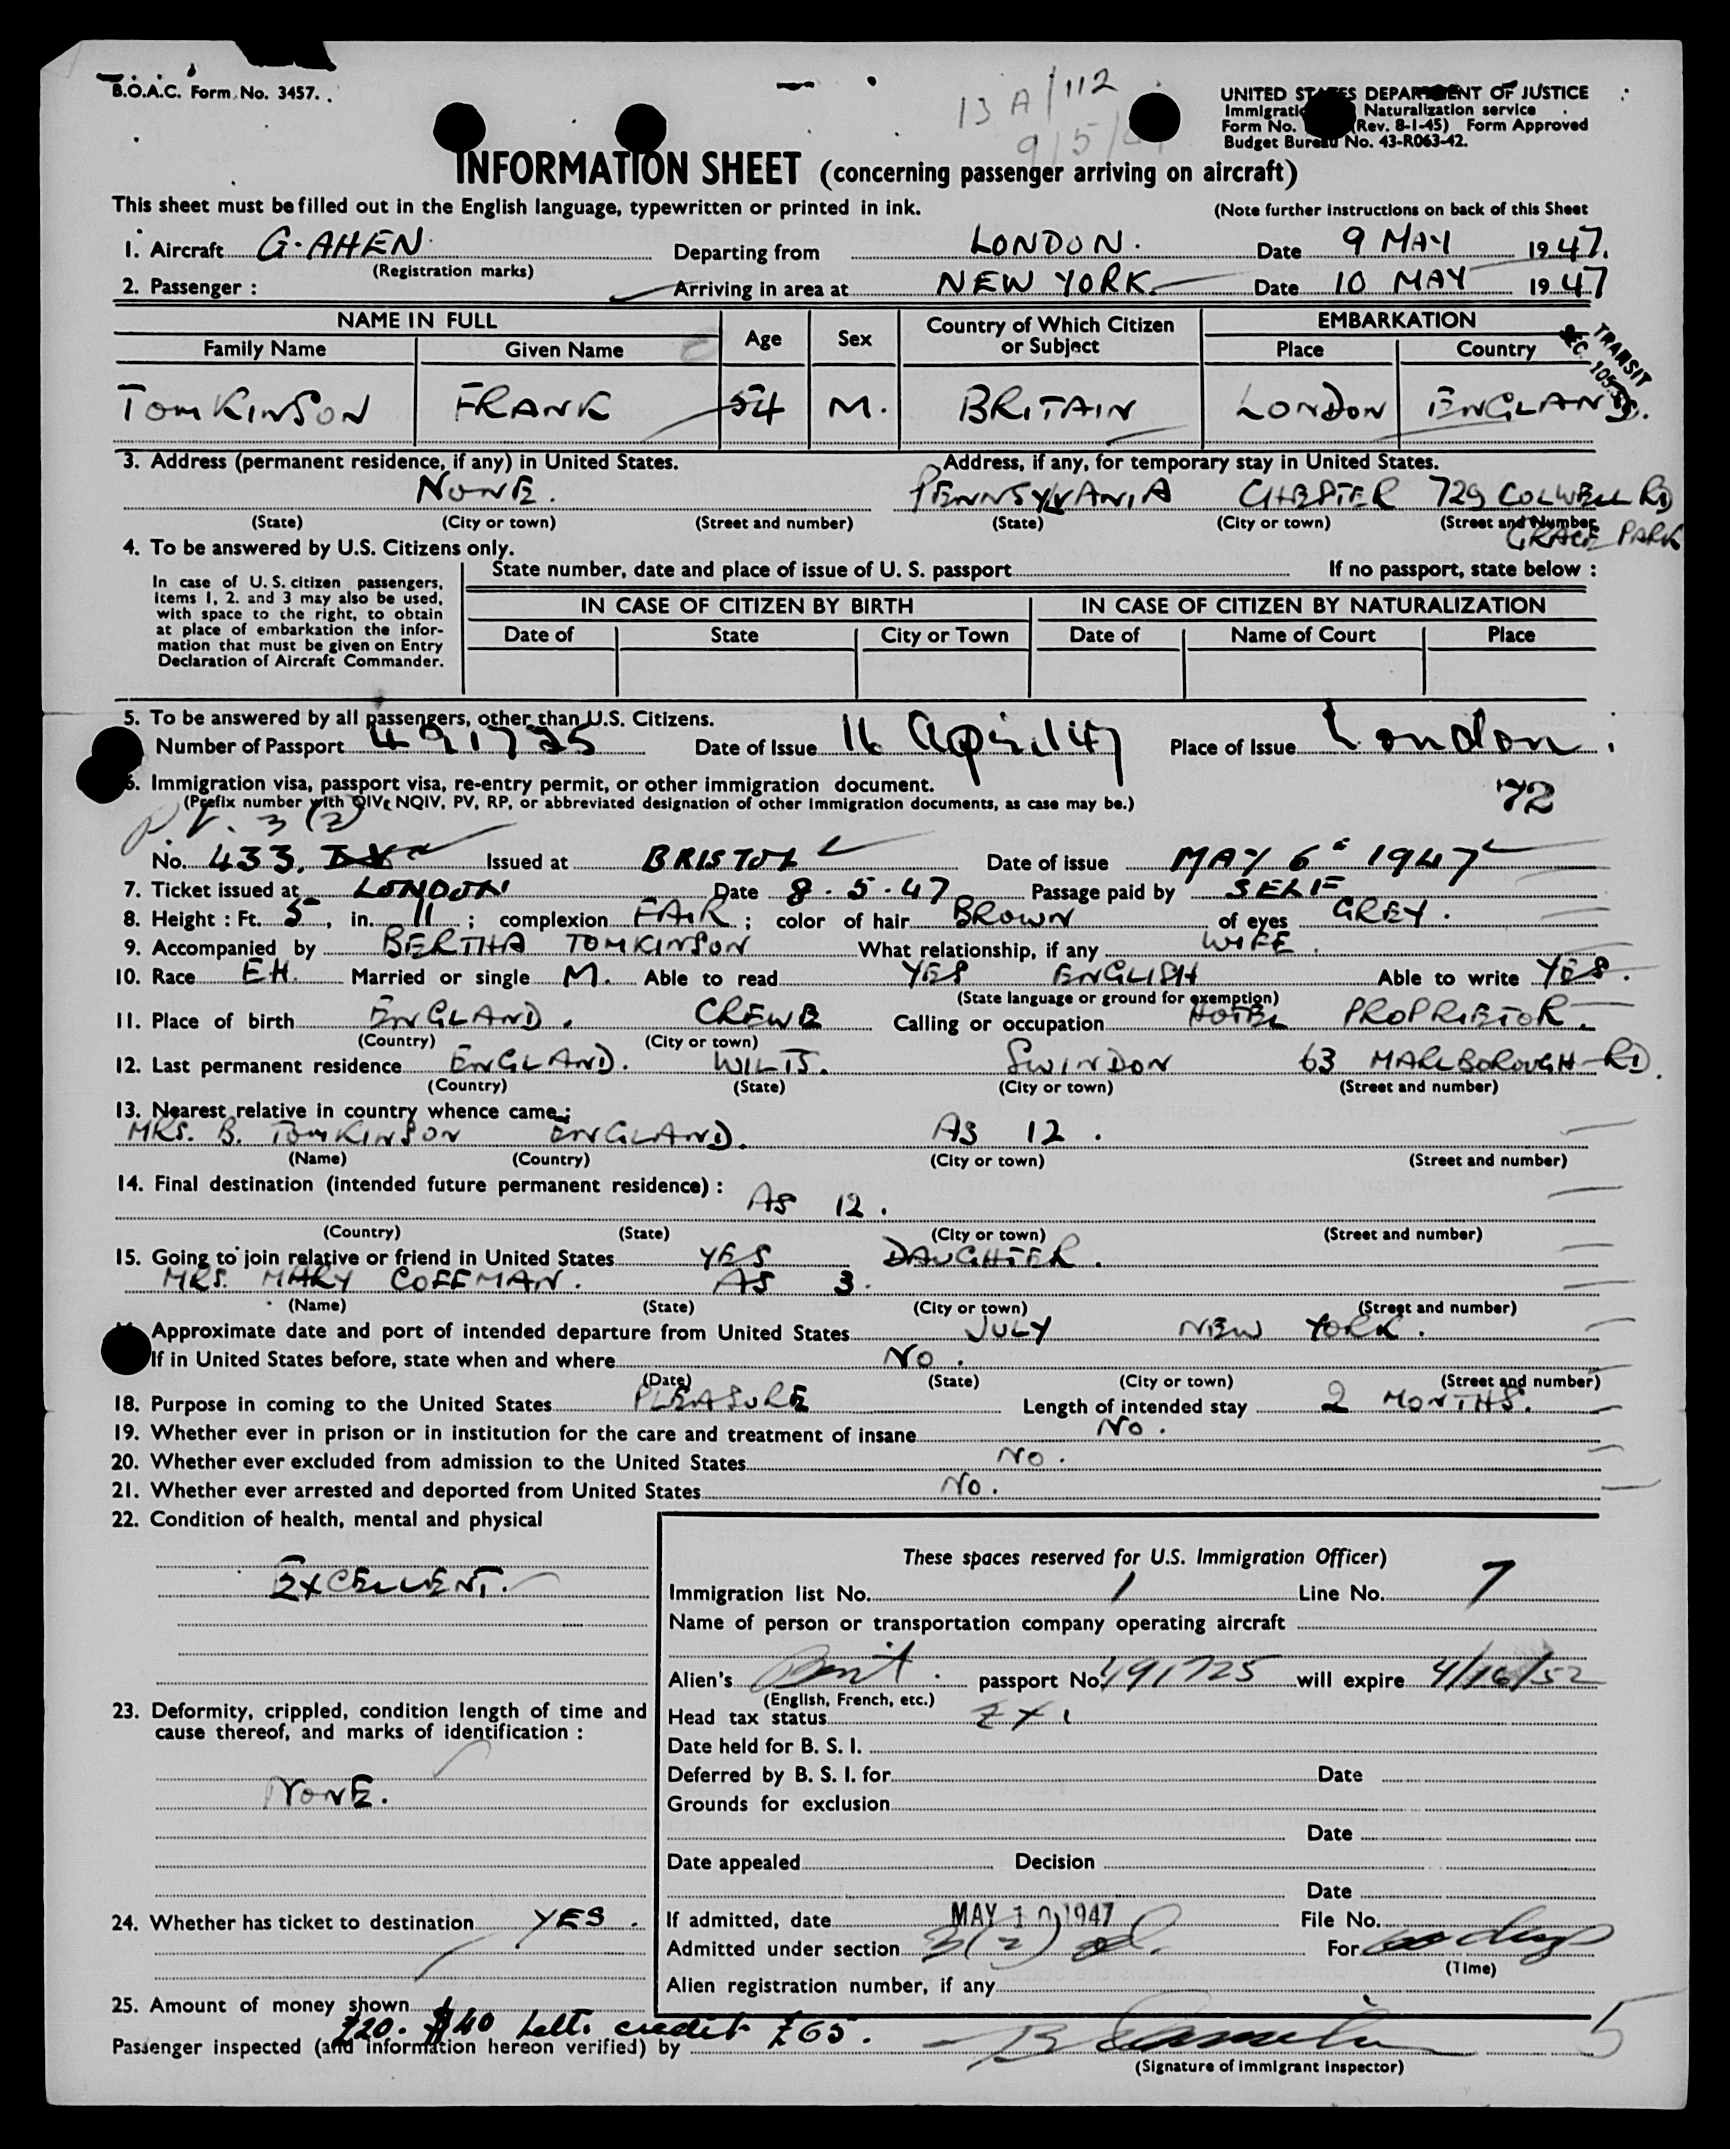 B.O.A.C. Form No. 3457.
13 A/112
9/5/47
UNITED STATES DEPARTMENT OF JUSTICE
Immigration Naturalization service
Form No. (Rev. 8-1-45) Form Approved
Budget Bureau No. 43-R063-42.
INFORMATION SHEET (concerning passenger arriving on aircraft)
This sheet must be filled out in the English language, typewritten or printed in ink. (Note further instructions on back of this Sheet
1. Aircraft G-AHEN Departing from LONDON. Date 9 MAY 1947.
(Registration marks)
2. Passenger : Arriving in area at NEW YORK. Date 10 MAY 1947
NAME IN FULL Age Sex Country of Which Citizen or Subject EMBARKATION
Family Name Given Name Place Country
TRANSIT
SEC. 105
TOMKINSON FRANK 54 M. BRITAIN LONDON ENGLAND.
3. Address (permanent residence, if any) in United States. Address, if any, for temporary stay in United States.
NONE. PENNSYLVANIA CHESTER 729 COLWELL RD
(State) (City or town) (Street and number) (State) (City or town) (Street and Number
GRACE PARK
4. To be answered by U.S. Citizens only.
In case of U. S. citizen passengers, items 1, 2. and 3 may also be used, with space to the right, to obtain at place of embarkation the information that must be given on Entry Declaration of Aircraft Commander.
State number, date and place of issue of U. S. passport If no passport, state below :
IN CASE OF CITIZEN BY BIRTH IN CASE OF CITIZEN BY NATURALIZATION
Date of State City or Town Date of Name of Court Place
5. To be answered by all passengers, other than U.S. Citizens.
Number of Passport 491725 Date of Issue 16 April 47 Place of Issue London.
6. Immigration visa, passport visa, re-entry permit, or other immigration document. 72
(Prefix number with QIV, NQIV, PV, RP, or abbreviated designation of other immigration documents, as case may be.)
P.V. 3(2)
No. 433. Issued at BRISTOL Date of issue MAY 6 1947
7. Ticket issued at LONDON Date 8.5.47 Passage paid by SELF
8. Height : Ft. 5, in. 11 ; complexion FAIR ; color of hair BROWN of eyes GREY.
9. Accompanied by BERTHA TOMKINSON What relationship, if any WIFE.
10. Race EH. Married or single M. Able to read YES ENGLISH Able to write YES.
(State language or ground for exemption)
11. Place of birth ENGLAND. CREWE Calling or occupation HOTEL PROPRIETOR.
(Country) (City or town)
12. Last permanent residence ENGLAND. WILTS. SWINDON 63 MARLBOROUGH RD.
(Country) (State) (City or town) (Street and number)
13. Nearest relative in country whence came :
MRS. B. TOMKINSON ENGLAND. AS 12.
(Name) (Country) (City or town) (Street and number)
14. Final destination (intended future permanent residence) :
AS 12.
(Country) (State) (City or town) (Street and number)
15. Going to join relative or friend in United States YES DAUGHTER.
MRS. MARY COFFMAN. AS 3.
(Name) (State) (City or town) (Street and number)
Approximate date and port of intended departure from United States JULY NEW YORK.
If in United States before, state when and where NO.
(Date) (State) (City or town) (Street and number)
18. Purpose in coming to the United States PLEASURE Length of intended stay 2 MONTHS.
19. Whether ever in prison or in institution for the care and treatment of insane NO.
20. Whether ever excluded from admission to the United States NO.
21. Whether ever arrested and deported from United States NO.
22. Condition of health, mental and physical
EXCELLENT.
23. Deformity, crippled, condition length of time and
cause thereof, and marks of identification :
NONE.
24. Whether has ticket to destination YES.
These spaces reserved for U.S. Immigration Officer)
Immigration list No. 1 Line No. 7
Name of person or transportation company operating aircraft
Alien's Brit. passport No. 491725 will expire 4/16/52
(English, French, etc.)
Head tax status
Date held for B. S. I.
Deferred by B. S. I. for Date
Grounds for exclusion
Date
Date appealed Decision
Date
If admitted, date MAY 10 1947 File No.
Admitted under section 3(2) For 60 days
(Time)
Alien registration number, if any
25. Amount of money shown
£20. $40 Lett. credit £65.
Passenger inspected (and information hereon verified) by
(Signature of immigrant inspector)
5